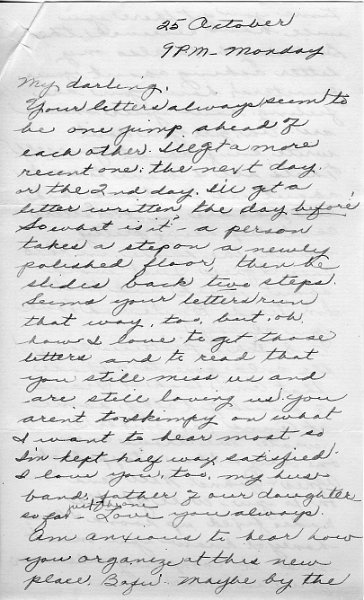 25 October
9 P.M - Monday
My darling,
Your letters always seem to
be one jump ahead of
each other. I'll get a more
recent one; the next day
or the 2nd day, I'll get a
letter written the day before.
So what is it - a person
takes a step on a newly
polished floor, then he
slides back two steps.
Seems your letters run
that way, too, but, oh,
how I love to get those
letters and to read that
you still miss us and
are still loving us. You
arent too skimpy on what
I want to hear most so
I'm kept half way satisfied.
I love you, too, my hus-
band, father of our daughter
just the one
so far - Love you always.
Am anxious to hear how
you organize at this new
place. Maybe by the